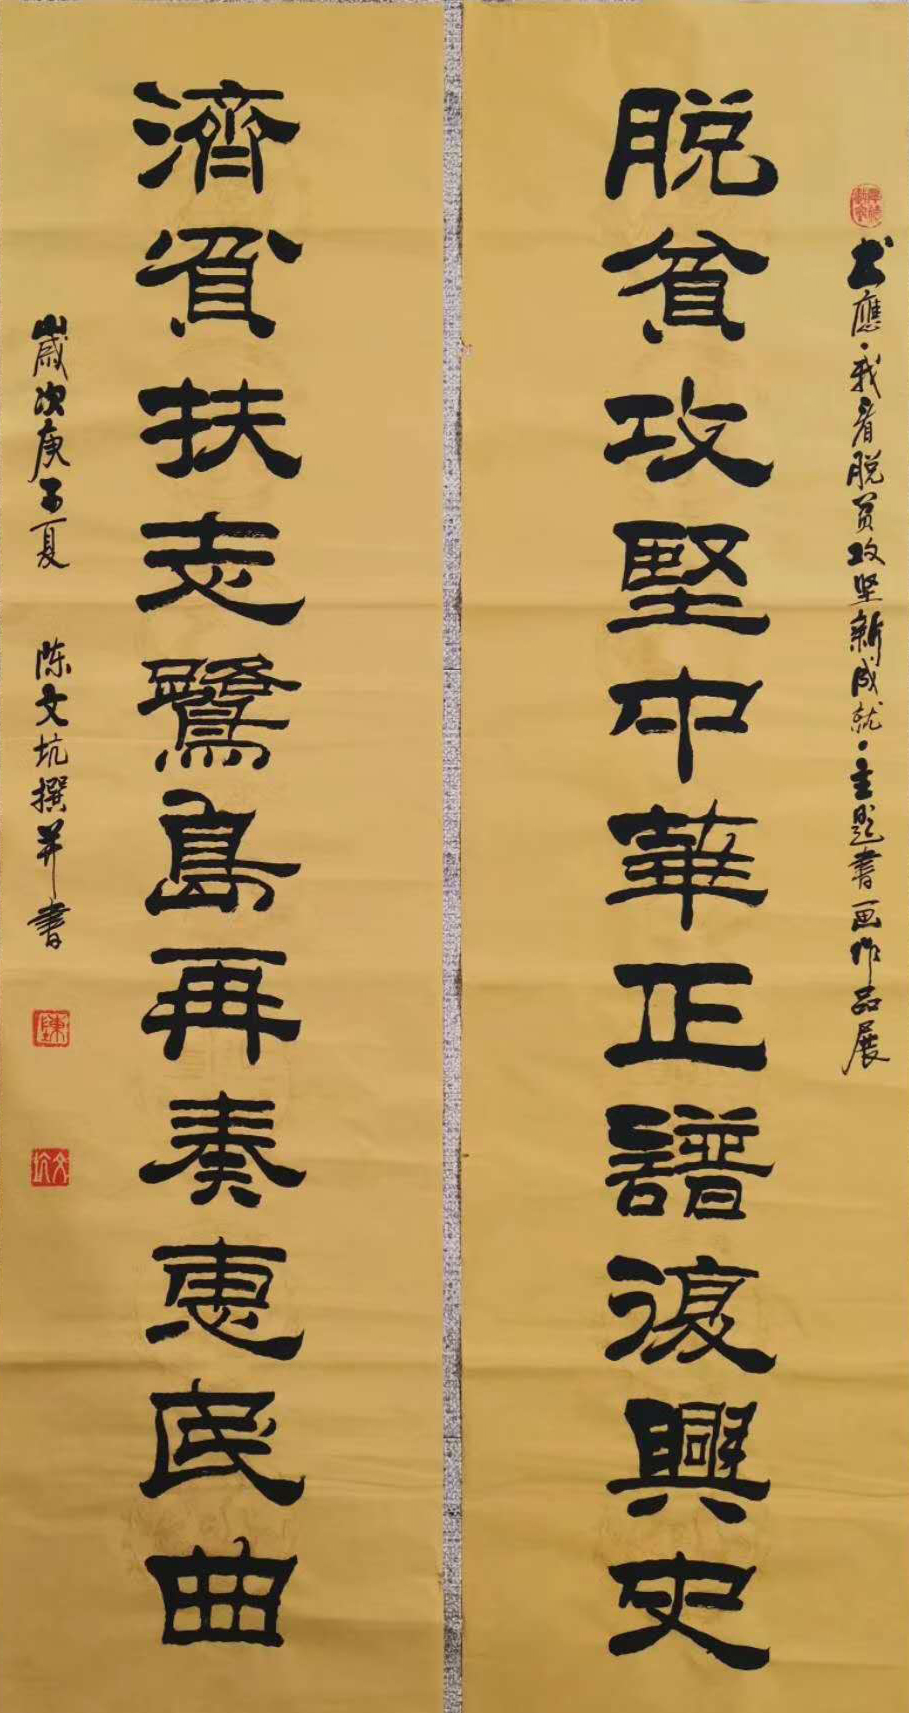 书應·我看脱贫攻坚新成就·主题書画作品展
脱貧攻堅中華正譜復興史
濟貧扶志鷺島再奏惠民曲
歲次庚子夏 陈文坑撰并書
陳
文坑